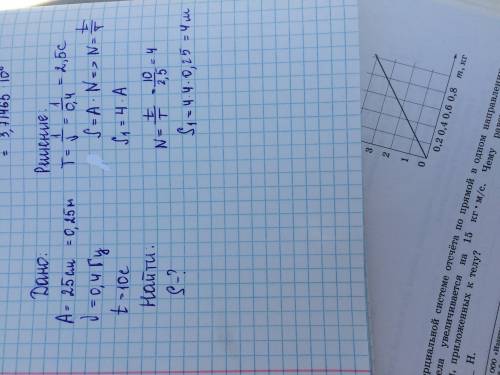 = 3,7465 10⁰
Дано:
A = 25 см = 0,25 м
ν = 0,4 Гц
t = 10 с
Найти:
S - ?
Решение:
T = 1/ν = 1/0,4 = 2,5 с
S = A · N => N = t/T
S₁ = 4 · A
N = t/T = 10/2,5 = 4
S₁ = 4 · 4 · 0,25 = 4 м
3
2
1
0
0,2 0,4 0,6 0,8 m, кг
ерциальной системе отсчёта по прямой в одном направлен
ела увеличивается на 15 кг · м/с. Чему
, приложенных к телу?
Н.